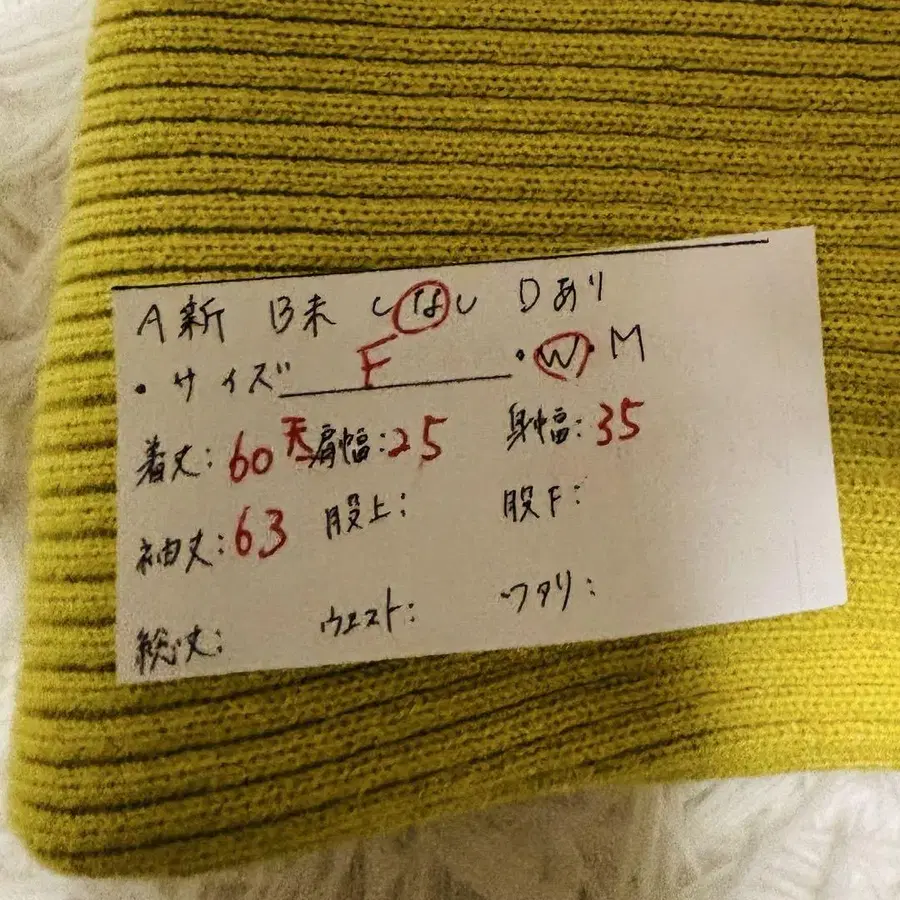 A新 B未 Cなし Dあり
・サイズ F ・W・M
着丈:60 天 肩幅:25 身幅:35
袖丈:63 股上: 股下:
総丈: ウエスト: ワタリ: